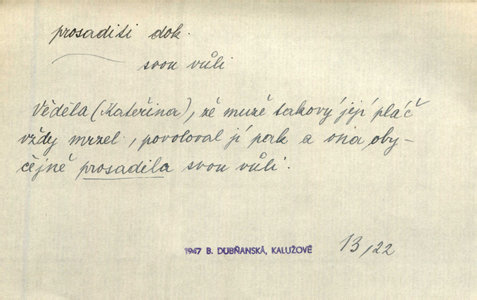 prosaditi dok.
svou vůli
Věděla (Kateřina), že muže takový její pláč
vždy mrzel, povoloval jí pak a ona oby-
čejně prosadila svou vůli.
1947 B. DUBŇANSKÁ, KALUŽOVÉ
13/22